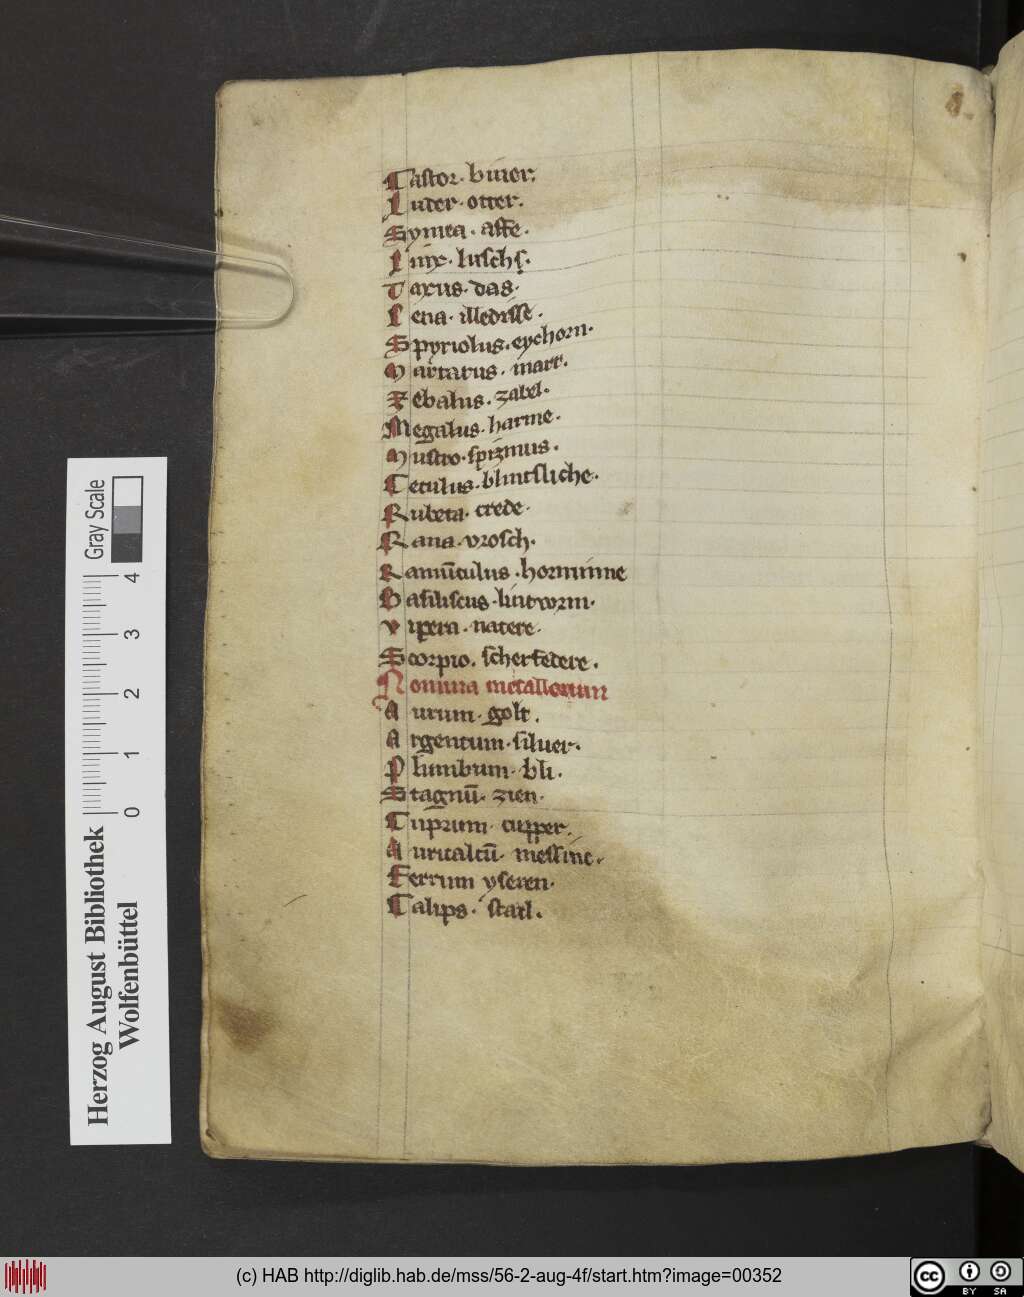 Castor · biuer.
Luter · otter.
Symea · affe.
Linx · luschs.
Taxus · das.
Lena · illedisse.
Spyriolus · eychorn.
Martarus · mart.
Zebalus · zabel.
Megalus · harme.
Mustro · spizmus.
Ceculus · blintsliche.
Rubeta · crede.
Rana · vrosch.
Ranūculus · hornunne
Basiliscus · lintworm.
Vipera · natere.
Scorpio. scherfedere.
Nomina metallorum
Aurum · golt.
Argentum · siluer.
Plumbum · bli.
Stagnū · zien.
Cuprum · cupper.
Auricalcū · messinc.
Ferrum yseren.
Calips · stail.
Gray Scale
0 1 2 3 4
Herzog August Bibliothek
Wolfenbüttel
(c) HAB http://diglib.hab.de/mss/56-2-aug-4f/start.htm?image=00352
cc BY SA